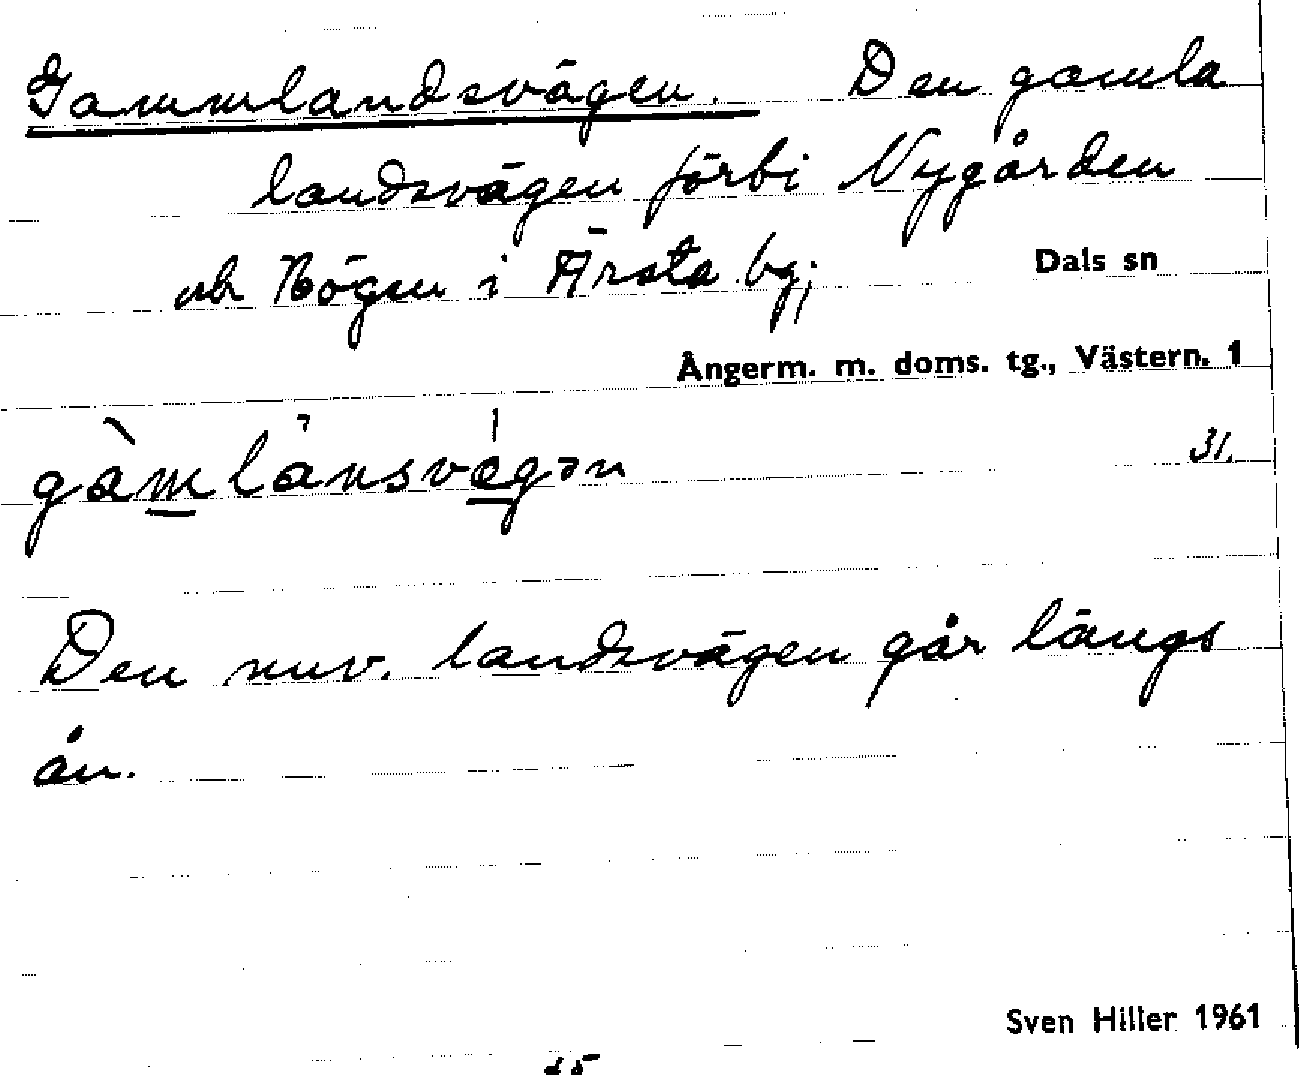 Gammlandsvägen. Den gamla
landsvägen förbi Nygården
i Ärsta bg;
Dals sn
Ångerm. m. doms. tg., Västern. 1
31.
gàmlànsvegən
Den nuv. landsvägen går längs
ån.
Sven Hiller 1961